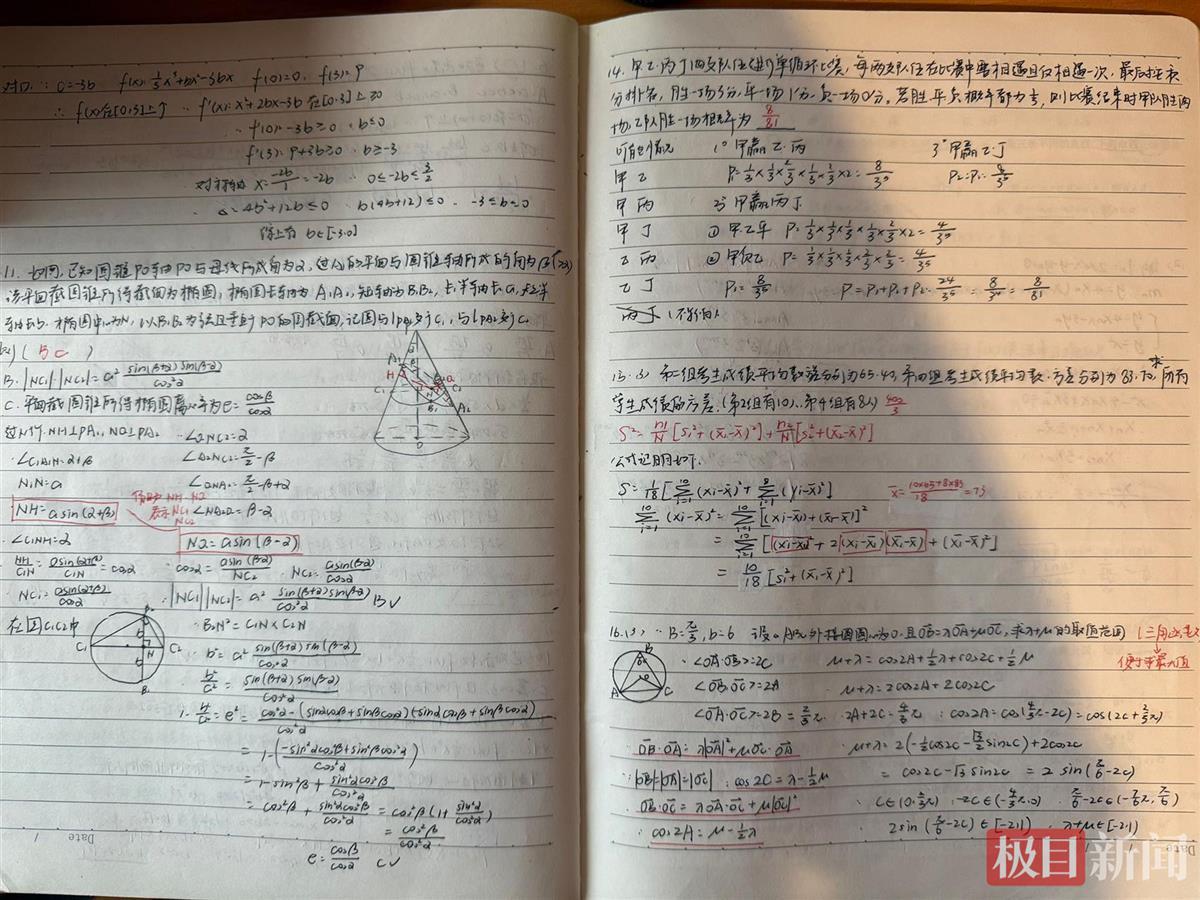 对□ ∵ c=-3b f(x)=⅓x³+bx²-3bx f(0)=0, f(3)=9
∴ f(x)在[0,3]上↑ ∴ f'(x)=x²+2bx-3b 在[0,3]上≥0
∴ f'(0)=-3b≥0 ∴ b≤0
f'(3)=9+3b≥0 b≥-3
对称轴 x=-2b/1=-2b ∴ 0≤-2b≤3/2
∴ △=4b²+12b≤0 b(4b+12)≤0 ∴ -3≤b≤0
综上有 b∈[-3,0]
11. 如图,已知圆锥PO轴PO与母线所成角为α,过A₁的平面与圆锥轴所成的角为β(β>α)
该平面截圆锥所得截面为椭圆,椭圆长轴为A₁A₂,短轴为B₁B₂,长半轴长a,短半
轴长b. 椭圆中心为N,以B₁B₂为弦且垂直于PO的圆截面,记圆与PA₁交于C₁,与PA₂交于C₂
( BC )
B. |NC₁|·|NC₂|=a² sin(β+α)sin(β-α)/cos²α
C. 平面截圆锥所得椭圆离心率为e=cosβ/cosα
过N作NH⊥PA₁, NQ⊥PA₂ ∴∠QNC₂=α
∴∠C₁A₁N=α+β ∠A₂NC₂=π/2-β
N₁N=a ∴∠QNA₂=π/2-β+α
NH=asin(α+β) 借助 NH·NQ 表示NC₁ NC₂ ∠NA₂Q=β-α
∠C₁NH=α NQ=asin(β-α)
NH/C₁N=asin(α+β)/C₁N=cosα ∴ cosα=asin(β-α)/NC₂ NC₂=asin(β-α)/cosα
∴ NC₁=asin(α+β)/cosα ∴ |NC₁||NC₂|=a² sin(β+α)sin(β-α)/cos²α B✓
在圆C₁C₂中 ∴ B₂N²=C₁N×C₂N
∴ b²=a² sin(β+α)sin(β-α)/cos²α
∴ b²/a²=sin(β+α)sin(β-α)/cos²α
1-b²/a²=e²=cos²α-(sinαcosβ+sinβcosα)(-sinαcosβ+sinβcosα)/cos²α
=1-(-sin²αcos²β+sin²βcos²α)/cos²α
=1-sin²β+sin²αcos²β/cos²α
=cos²β+sin²αcos²β/cos²α=cos²β(1+sin²α/cos²α)
=cos²β/cos²α
e=cosβ/cosα C✓
Date
14. 甲乙丙丁四支队伍进行单循环比赛,每两支队伍在比赛中要相遇且仅相遇一次,最后按积
分排名,胜一场3分,平一场1分,负一场0分. 若胜平负概率都为⅓,则比赛结束时甲队胜两
场,乙队胜一场概率为 8/81
可能情况 1° 甲赢乙·丙 3° 甲赢乙丁
甲 乙 P₁=⅓×⅓×⅔×⅓×⅔×2=8/3⁵ P₂=P₁=8/3⁵
甲 丙 2° 甲赢丙丁
甲 丁 ① 甲乙平 P=⅓×⅓×⅓×⅓×⅔×2=4/3⁵
乙 丙 ② 甲负乙 P=⅓×⅓×⅓×⅔×⅔=4/3⁵
乙 丁 P₃=8/3⁵ P=P₁+P₂+P₃=24/3⁵=8/3⁴=8/81
丙丁 (不影响)
15. (3) 第二组考生成绩平均数方差分别为65.40,第四组考生成绩平均数·方差分别为83.70,求所有
学生成绩的方差. (第2组有10人、第4组有8人) 400/3
S²=n₁/N[S₁²+(x̄₁-x̄)²]+n₂/N[S₂²+(x̄₂-x̄)²]
公式证明如下.
S²=1/18[Σ(xi-x̄)²+Σ(yi-x̄)²] x̄=10×65+8×83/18=73
Σ(xi-x̄)²=Σ[(xi-x̄₁)+(x̄₁-x̄)]²
=Σ[(xi-x̄₁)²+2(xi-x̄₁)(x̄₁-x̄)+(x̄₁-x̄)²]
=10/18[S₁²+(x̄₁-x̄)²]
16.(3) ∵ B=π/3, b=6 设△ABC外接圆圆心为O.且OB=λOA+μOC,求λ+μ的取值范围 (三角函数
便于求最大值
∴<OA·OB>=2C μ+λ=cos2A+½λ+cos2C+½μ
<OB·OC>=2A μ+λ=2cos2A+2cos2C
<OA·OC>=2B=⅔π ∴ 2A+2C=4/3π ∴ cos2A=cos(4/3π-2C)=cos(2C+⅔π)
∴ OB·OA=λ|OA|²+μOC·OA ∴ μ+λ=2(-½cos2C-√3/2sin2C)+2cos2C
∵|OB|=|OA|=|OC| ∴ cos2C=λ-½μ =cos2C-√3sin2C=2sin(π/6-2C)
∴ OB·OC=λOA·OC+μ|OC|² ∴ C∈(0,⅔π) ∴-2C∈(-4/3π,0) ∴ π/6-2C∈(-7/6π,π/6)
∴ cos2A=μ-½λ 2sin(π/6-2C)∈[-2,1) ∴ λ+μ∈[-2,1)
Date
极目新闻